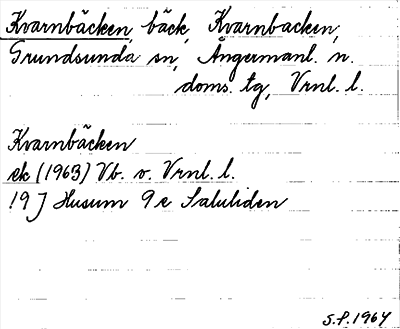 Kvarnbäcken, bäck, Kvarnbacken,
Grundsunda sn, Ångermanl. n.
doms. tg, Vrnl. l.
Kvarnbäcken
ek (1963) Vb. v. Vrnl. l.
19 J Husum 9 e Saluliden
S.P. 1964